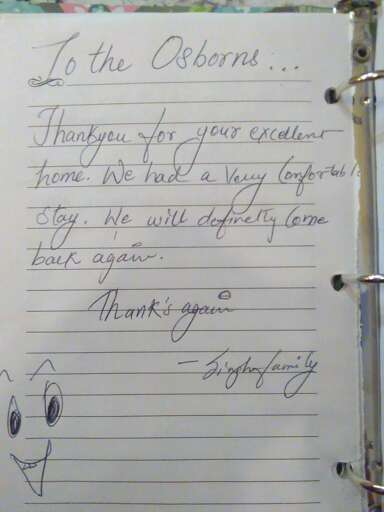 To the Osborns...
Thankyou for your excellent
home. We had a Very Comfortable
Stay. We will definetly Come
back again.
Thank's again
- Singh family